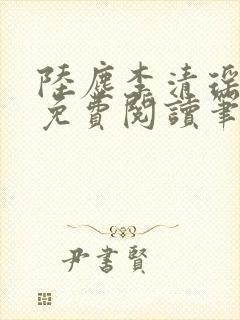 陸塵李清瑶
免費閱讀筆
尹書賢